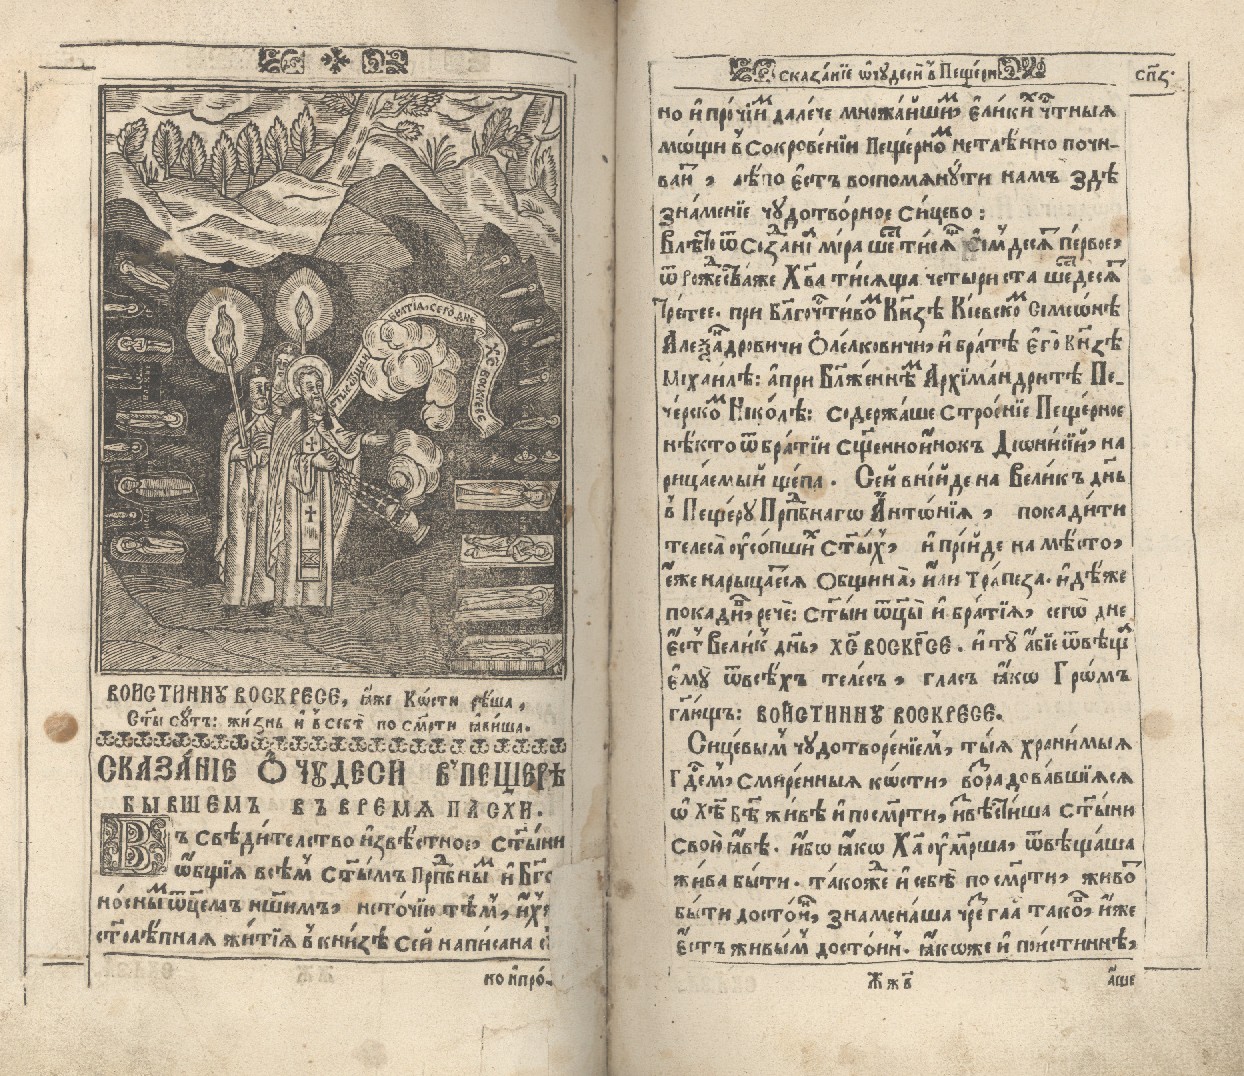 БРАТІА· СЕГО ДНЕ
ХС̃ ВОСКРЕСЕ
ВОИСТИННУ ВОСКРЕСЕ, ꙗ҆́же Кѡ́сти рѣ́ша,
Ст҃ы сꙋ́тъ: жи́знь и҆ в себѣ̀ по см҃рти ꙗ҆ви́ша.
СКАЗА́НІЕ Ѻ҆ ЧꙊДЕСИ В ПЕЩЕРѢ
БЫВШЕМЪ ВЪ ВРЕМѦ ПАСХИ.
Въ свѣди́телство и҆звѣ́стное, ст҃ы́ни
ѻ҆́бщїѧ всѣ́мъ ст҃ымъ Прпⷣбнымъ и҆ Бг҃о
но́снымъ ѿце́мъ на́шимъ, не то́чїю тѣ́мъ, и҆́хже
столѣ́пнаѧ житїѧ̀ в кни́зѣ Се́й напи́сана
но и҆ про́-
сказа́нїе ѡ҆ чꙋдесѝ в Пеще́рѣ
сп҃ѕ·
но и҆ про́чїимъ дале́че мно́жайшимъ, є҆ли́кихъ чⷭ҇тныѧ
мо́щи в Сокрове́нїи Пеще́рномъ нетлѣ́нно почи-
ваю́тъ, лѣ́по є҆́стъ воспомѧнꙋ́ти на́мъ здѣ̀
зна́менїе чꙋдотво́рное си́цево:
В лѣ́то ѿ Созда́нїѧ мі́ра ше́сть ти́сѧщъ се́дмдесѧтъ пе́рвое,
ѿ рождества́ же Хв҃а ти́сѧща четы́ри ста шестьдесѧ́тъ
Тре́тее. при Бл҃гочⷭ҇ти́вомъ Кн҃ѕѣ Кі́евскомъ Сімеѡ́нѣ
Алеѯа́ндровичи Ѻле́лковичи, и҆ бра́тѣ є҆гѡ̀ Кн҃ѕѣ
Міхаи́лѣ: а҆ при Бл҃же́ннѣмъ Архїма́ндритѣ Пе-
че́рскомъ Нїко́лѣ: содержа́ше строе́нїе Пеще́рное
нѣ́кто ѿ бра́тїи сщ҃е́нноинокъ Дїѡни́сїй, на
рица́емый ще́па. Се́й вни́йде на Вели́къ днь
в Пеще́рꙋ Прпⷣбнагѡ А҆нтѡ́нїѧ, покади́ти
телеса̀ ᲂу҆со́пшихъ ст҃ы́хъ, и҆ прїи́йде на мѣ́сто,
є҆́же нарыца́етсѧ Ѻбщина̀, и҆лѝ Тра́пеза. и҆дѣ́же
покади́въ, речѐ: ст҃ы́и ѿцы̀ и҆ бра́тїѧ, сегѡ̀ дне
є҆́стъ Вели́къ днь, ХС҃ ВОСКРЕСЕ. и҆ тꙋ̀ а҆́бїе ѿвѣща̀
є҆мꙋ̀ ѿ всѣ́хъ теле́съ, гла́съ ꙗ҆́кѡ Гро́мъ
гл҃ющъ: ВОИСТИННꙊ ВОСКРЕСЕ.
Си́цевымъ чꙋдотворе́нїемъ, ты́ѧ храни́мыѧ
Гдⷭ҇емъ, смире́нныѧ кѡ́сти, возра́довавшїѧсѧ
ѡ҆ Хѣ҃ Бз҃ѣ жи́вѣ и҆ по см҃рти, и҆звѣсти́ша ст҃ы́ни
своеѝ ꙗ҆́вѣ. и҆́бѡ ꙗ҆́кѡ Ха҃ ᲂу҆́мрша, ѿвѣща́ша
жи́ва бы́ти. та́кожде и҆ себѐ по см҃рти, живо
бы́ти досто́йнъ, знаменаша чрез гла́съ тако́въ, и҆́же
є҆́стъ живы́мъ досто́инъ. ꙗ҆́коже и҆ пои́стиннѣ,
а҆́ще